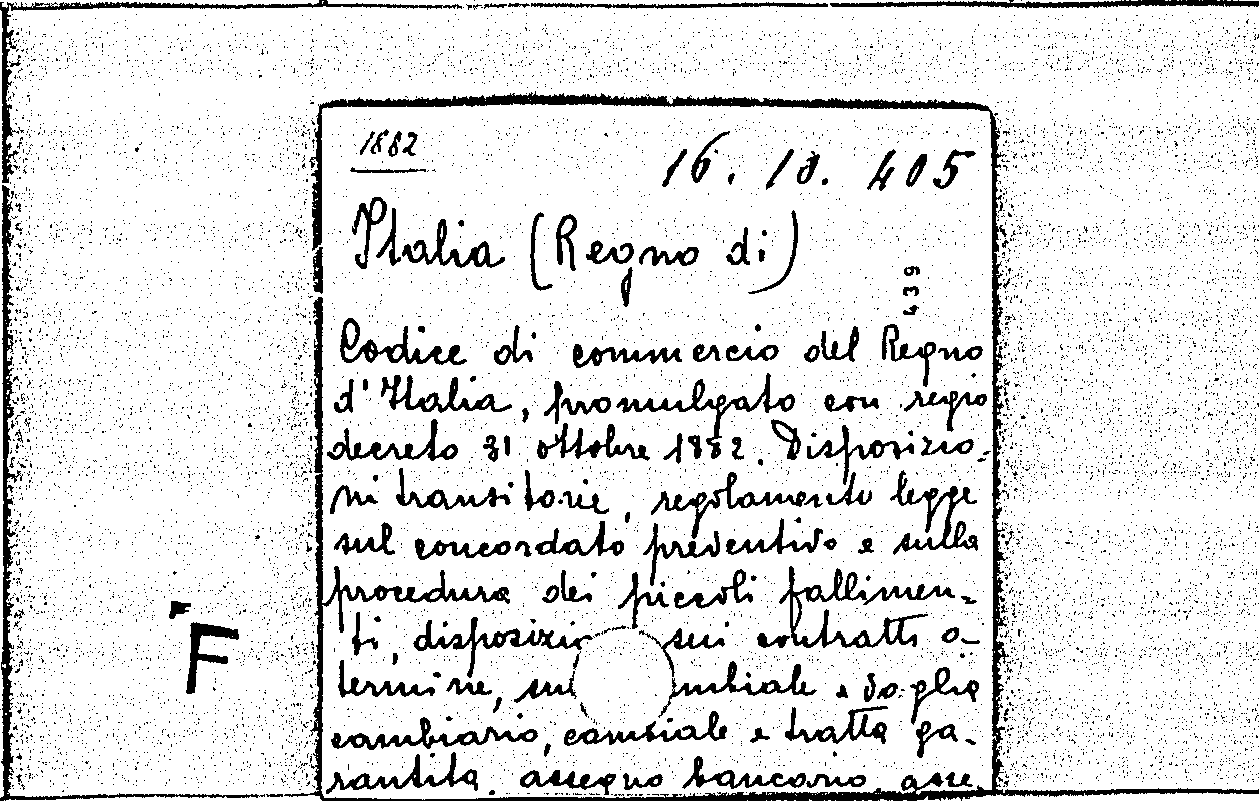 1882
16. 10. 405
Italia (Regno di)
439
Codice di commercio del Regno
d'Italia, promulgato con regio
decreto 31 ottobre 1882. Disposizio-
ni transitorie, regolamento legge
sul concordato preventivo e sulla
procedura dei piccoli fallimen-
ti, disposizio sui contratti a
termine, su mbiale e vaglia
cambiario, cambiale e tratta ga-
rantita, assegno bancario, asse-
F